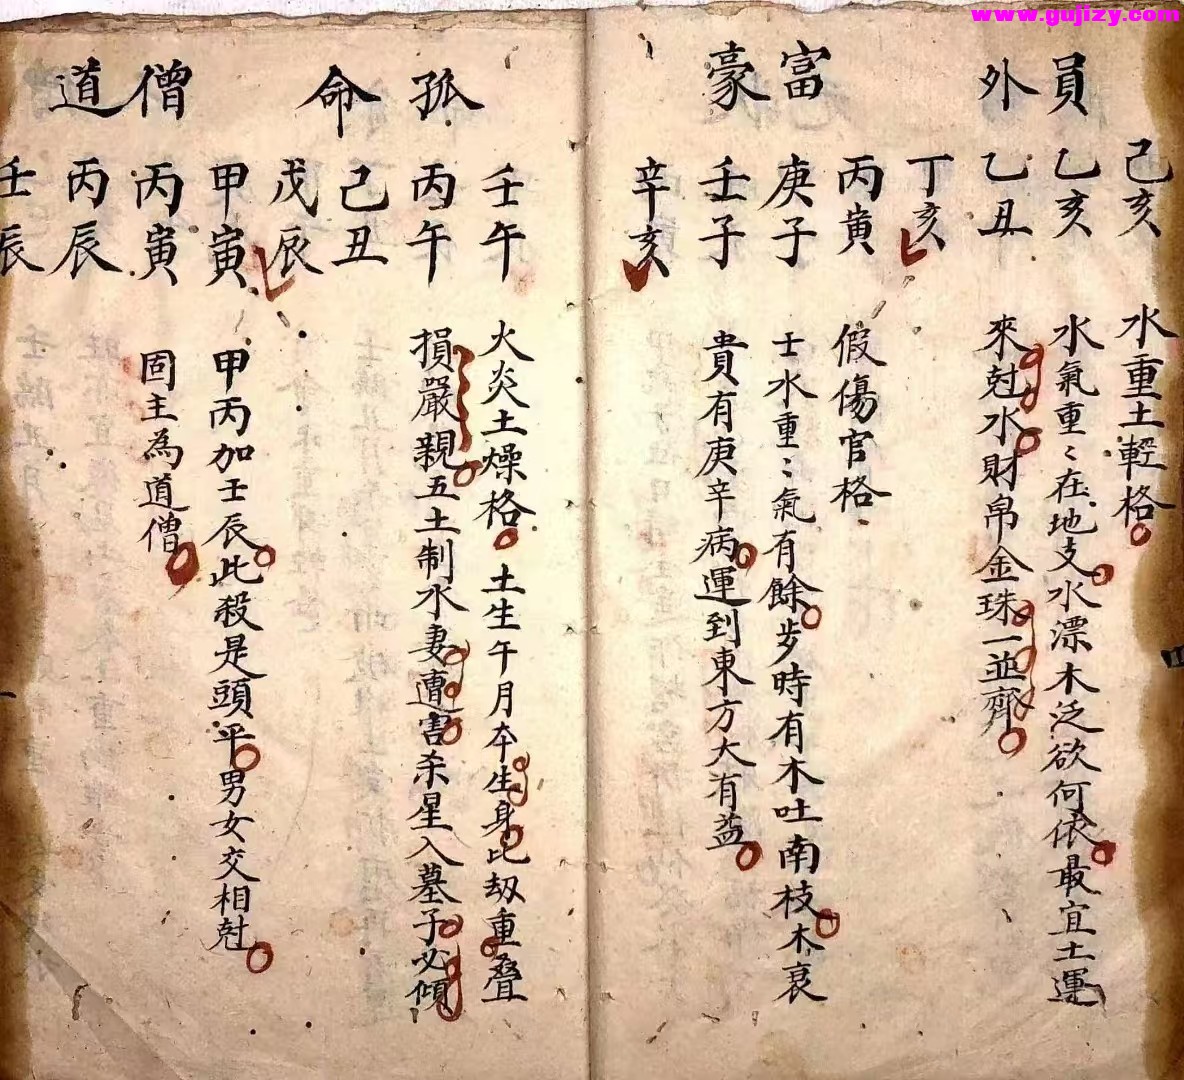 www.gujizy.com
員外
己亥 水重土輕格
乙亥 水氣重〻在地支水漂木泛欲何依最宜土運
乙丑 來尅水財帛金珠一並齊
丁亥
富豪
丙寅 假傷官格
庚子 壬水重〻氣有餘步時有木吐南枝木衰
壬子 貴有庚辛病運到東方大有益
辛亥
孤命
壬午 火炎土燥格 土生午月本生身比刼重叠
丙午 損嚴親五土制水妻遭害杀星入墓子必傾
己丑
戊辰
僧道
甲寅 甲丙加壬辰此殺是頭平男女交相尅
丙寅 固主為道僧
丙辰
壬辰